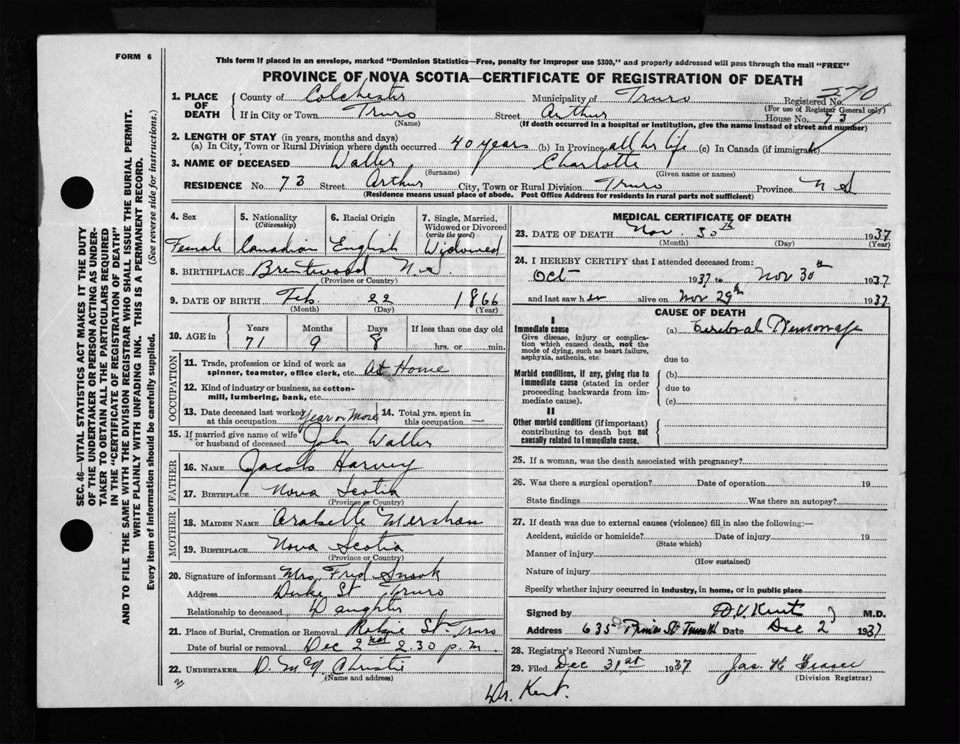 FORM 6
This form if placed in an envelope, marked "Dominion Statistics—Free, penalty for improper use $300," and properly addressed will pass through the mail "FREE"
PROVINCE OF NOVA SCOTIA—CERTIFICATE OF REGISTRATION OF DEATH
1. PLACE OF DEATH
County of Colchester Municipality of Truro Registered No. 270
(For use of Registrar General only)
If in City or Town Truro Street Arthur House No. 73
(Name) (If death occurred in a hospital or institution, give the name instead of street and number)
2. LENGTH OF STAY (in years, months and days)
(a) In City, Town or Rural Division where death occurred 40 years (b) In Province all her life (c) In Canada (if immigrant)
3. NAME OF DECEASED Walter Charlotte
(Surname) (Given name or names)
RESIDENCE No. 73 Street Arthur City, Town or Rural Division Truro Province N S
(Residence means usual place of abode. Post Office Address for residents in rural parts not sufficient)
4. Sex
Female
5. Nationality
(Citizenship)
Canadian
6. Racial Origin
English
7. Single, Married, Widowed or Divorced
(write the word)
Widowed
8. BIRTHPLACE Brentwood N S
(Province or Country)
9. DATE OF BIRTH Feb. 22 1866
(Month) (Day) (Year)
10. AGE in Years Months Days If less than one day old
71 9 8 hrs. or min.
OCCUPATION
11. Trade, profession or kind of work as spinner, teamster, office clerk, etc. At Home
12. Kind of industry or business, as cotton-mill, lumbering, bank, etc.
13. Date deceased last worked at this occupation Year or More
14. Total yrs. spent in this occupation —
15. If married give name of wife or husband of deceased John Walter
FATHER
16. NAME Jacob Harvey
17. BIRTHPLACE Nova Scotia
(Province or Country)
MOTHER
18. MAIDEN NAME
19. BIRTHPLACE Nova Scotia
(Province or Country)
20. Signature of informant Mrs. Fred Snook
Address Duke St Truro
Relationship to deceased Daughter
21. Place of Burial, Cremation or Removal Robie St. Truro
Date of burial or removal Dec 2nd 2.30 p.m.
22. UNDERTAKER D. McN Christie
(Name and address)
MEDICAL CERTIFICATE OF DEATH
23. DATE OF DEATH Nov. 30th 1937
(Month) (Day) (Year)
24. I HEREBY CERTIFY that I attended deceased from:
Oct 1937 to Nov 30th 1937
and last saw her alive on Nov 29th 1937
CAUSE OF DEATH
I
Immediate cause
Give disease, injury or complication which caused death, not the mode of dying, such as heart failure, asphyxia, asthenia, etc.
(a) Cerebral Hemorrhage
due to
Morbid conditions, if any, giving rise to immediate cause (stated in order proceeding backwards from immediate cause).
(b)
due to
(c)
II
Other morbid conditions (if important) contributing to death but not causally related to immediate cause.
25. If a woman, was the death associated with pregnancy?
26. Was there a surgical operation? Date of operation 19
State findings Was there an autopsy?
27. If death was due to external causes (violence) fill in also the following:—
Accident, suicide or homicide? Date of injury 19
(State which)
Manner of injury
(How sustained)
Nature of injury
Specify whether injury occurred in industry, in home, or in public place
Signed by D.V. Kent M.D.
Address 635 Prince St Truro Date Dec 2 1937
28. Registrar's Record Number
29. Filed Dec 31st 1937 Jas. H Fraser
(Division Registrar)
Dr. Kent.
SEC. 46—VITAL STATISTICS ACT MAKES IT THE DUTY
OF THE UNDERTAKER OR PERSON ACTING AS UNDER-
TAKER TO OBTAIN ALL THE PARTICULARS REQUIRED
IN THE "CERTIFICATE OF REGISTRATION OF DEATH"
AND TO FILE THE SAME WITH THE DIVISION REGISTRAR WHO SHALL ISSUE THE BURIAL PERMIT.
WRITE PLAINLY WITH UNFADING INK. THIS IS A PERMANENT RECORD.
Every item of information should be carefully supplied. (See reverse side for instructions.)